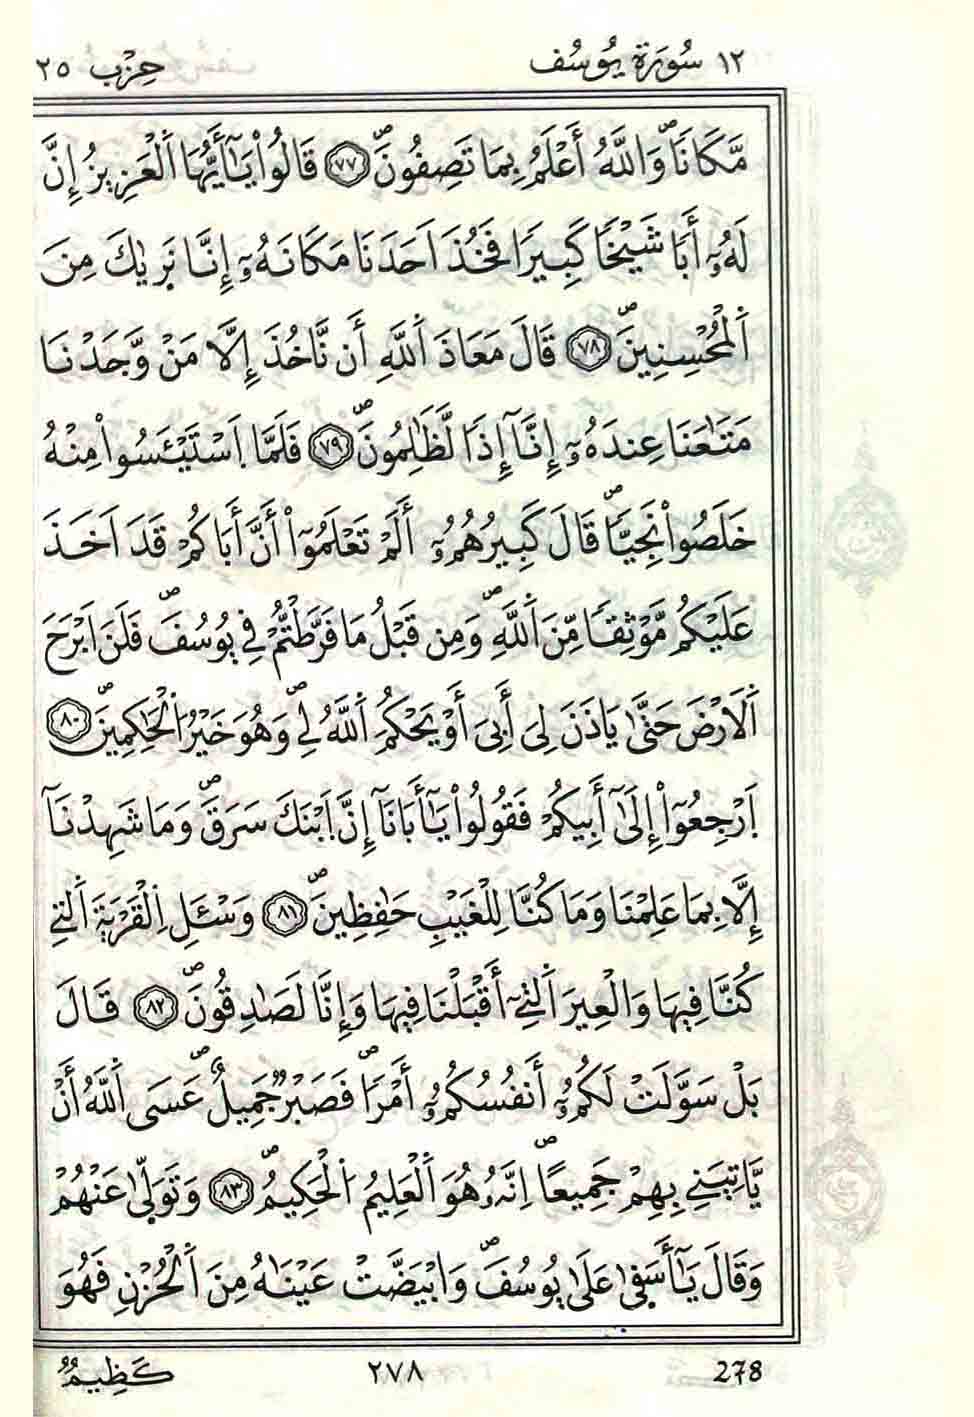 ١٢ سُورَةُ يُوسُف حِزْب ٢٥
مَّكَانٗاۖ وَاللَّهُ أَعْلَمُ بِمَا تَصِفُونَۖ ٧٧ قَالُواْ يَٰٓأَيُّهَا اَ۬لْعَزِيزُ إِنَّ
لَهُۥٓ أَباٗ شَيْخاٗ كَبِيراٗ فَخُذَ اَحَدَنَا مَكَانَهُۥٓ إِنَّا نَر۪يٰكَ مِنَ
اَ۬لْمُحْسِنِينَۖ ٧٨ قَالَ مَعَاذَ اَ۬للَّهِ أَن نَّاخُذَ إِلَّا مَنْ وَّجَدْنَا
مَتَٰعَنَا عِندَهُۥٓ إِنَّآ إِذاٗ لَّظَٰلِمُونَۖ ٧٩ فَلَمَّا اَ۪سْتَيْـَٔسُواْ مِنْهُ
خَلَصُواْ نَجِيّاٗۖ قَالَ كَبِيرُهُمُۥٓ أَلَمْ تَعْلَمُوٓاْ أَنَّ أَبَاكُمْ قَدَ اَخَذَ
عَلَيْكُم مَّوْثِقاٗ مِّنَ اَ۬للَّهِۖ وَمِن قَبْلُ مَا فَرَّطتُّمْ فِے يُوسُفَۖ فَلَنَ اَبْرَحَ
اَ۬لَارْضَ حَتَّىٰ يَاذَنَ لِيَ أَبِيَ أَوْ يَحْكُمَ اَ۬للَّهُ لِےۖ وَهُوَ خَيْرُ اُ۬لْحَٰكِمِينَۖ ٨٠
اَ۪رْجِعُوٓاْ إِلَىٰٓ أَبِيكُمْ فَقُولُواْ يَٰٓأَبَانَآ إِنَّ اَ۪بْنَكَ سَرَقَۖ وَمَا شَهِدْنَآ
إِلَّا بِمَا عَلِمْنَا وَمَا كُنَّا لِلْغَيْبِ حَٰفِظِينَۖ ٨١ وَسْـَٔلِ اِ۬لْقَرْيَةَ اَ۬لتِے
كُنَّا فِيهَا وَالْعِيرَ اَ۬لتِےٓ أَقْبَلْنَا فِيهَا وَإِنَّا لَصَٰدِقُونَۖ ٨٢ قَالَ
بَلْ سَوَّلَتْ لَكُمُۥٓ أَنفُسُكُمُۥٓ أَمْراٗۖ فَصَبْرٞ جَمِيلٌۖ عَسَى اَ۬للَّهُ أَنْ
يَّاتِيَنِے بِهِمْ جَمِيعاًۖ اِنَّهُۥ هُوَ اَ۬لْعَلِيمُ اُ۬لْحَكِيمُۖ ٨٣ وَتَوَلّ۪يٰ عَنْهُمْ
وَقَالَ يَٰٓأَسَف۪يٰ عَلَىٰ يُوسُفَۖ وَابْيَضَّتْ عَيْنَٰهُ مِنَ اَ۬لْحُزْنِ فَهُوَ
كَظِيمٞ ٢٧٨ 278